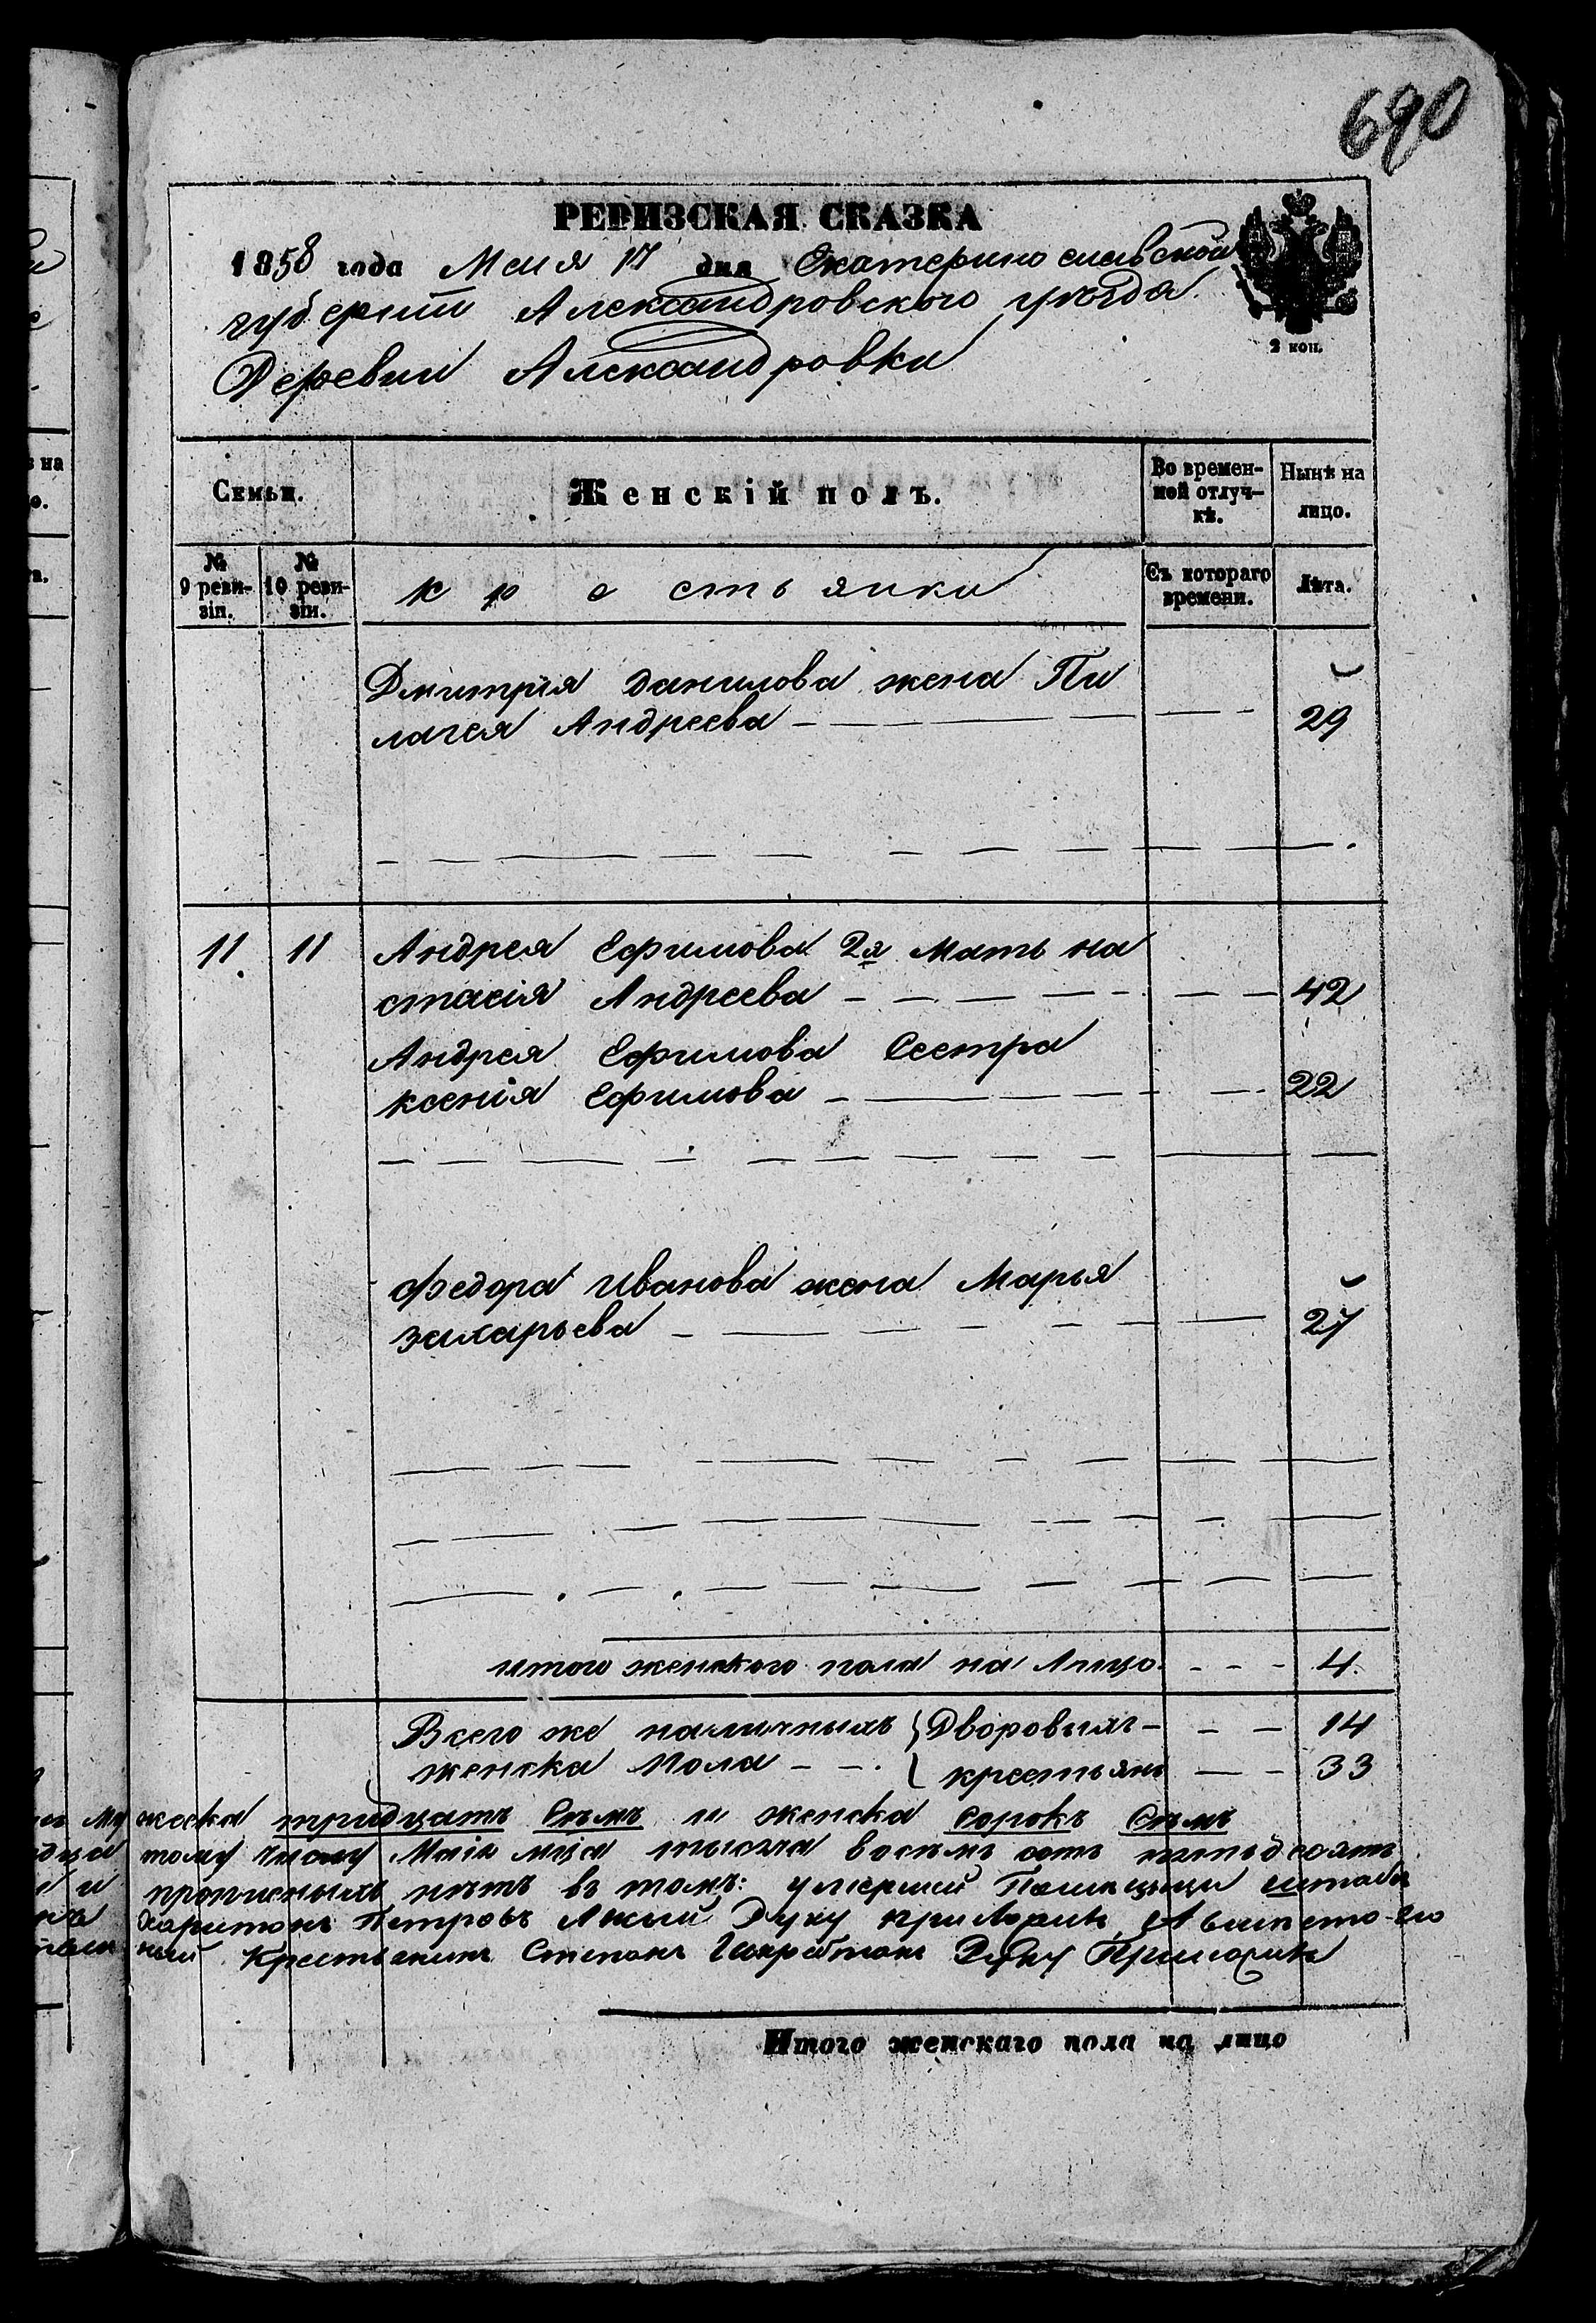 690
РЕВИЗСКАЯ СКАЗКА
1858 года Маия 17 дня Екатеринославской
губернии Александровского уѣзда
Деревни Александровки
2 коп.
Семьи.
Женскій полъ.
Во времен-
ной отлуч-
кѣ.
Нынѣ на
лицо.
№
9 реви-
зіи.
№
10 реви-
зіи.
крестьянки
Съ котораго
времени.
Лѣта.
Дмитрія данилова жена Пи
лагея Андреева 29
11. 11 Андрея Ефимова 2я мать на
стасія Андреева 42
Андрея Ефимова Сестра
ксенія Ефимова 22
Федора Иванова жена Марья
захарьева 27
итого женского пола на лицо 4.
Всего же наличныхъ Дворовыхъ 14
женска пола крестьянъ 33
жеска тридцать Сѣмъ и женска сорокъ Сѣмъ
тому числу Маія мца тысяча восѣмъ сотъ пятьдесятъ
прописныхъ нѣтъ въ томъ: умершей Помещицы штабъ
харитонъ Петровъ
ный Крестьянинъ Степанъ Руку Приложилъ
Итого женскаго пола на лицо